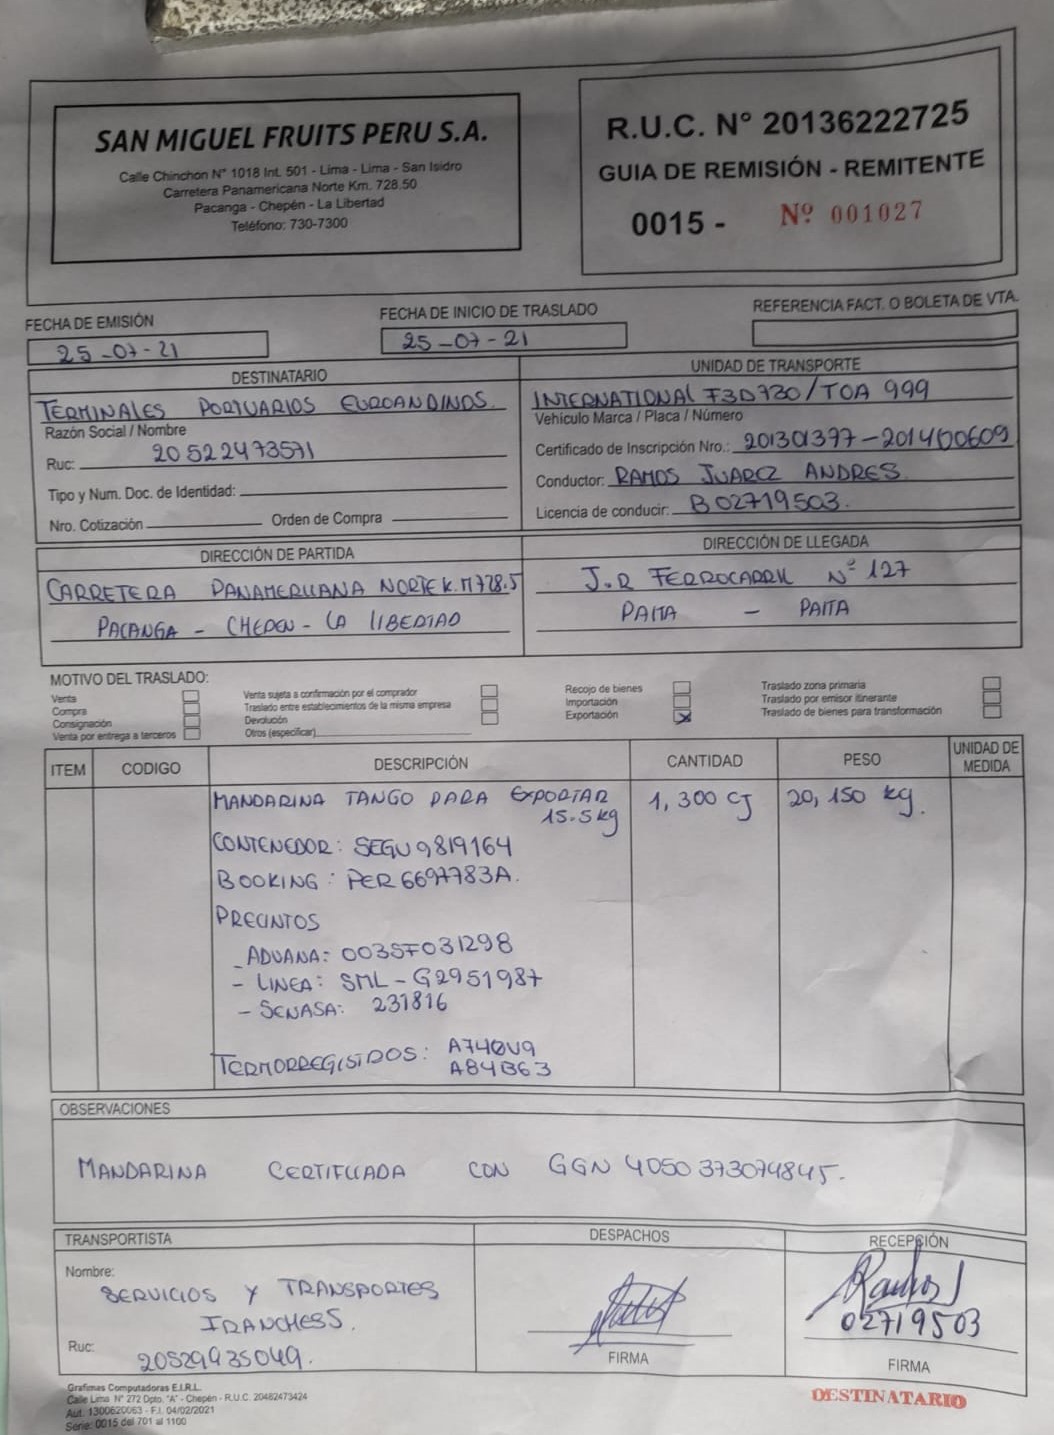 SAN MIGUEL FRUITS PERU S.A.
Calle Chinchon N° 1018 Int. 501 - Lima - Lima - San Isidro
Carretera Panamericana Norte Km. 728.50
Pacanga - Chepén - La Libertad
Teléfono: 730-7300
R.U.C. N° 20136222725
GUIA DE REMISIÓN - REMITENTE
0015 - Nº 001027
FECHA DE EMISIÓN
25-07-21
FECHA DE INICIO DE TRASLADO
25-07-21
REFERENCIA FACT. O BOLETA DE VTA.
DESTINATARIO
TERMINALES PORTUARIOS EUROANDINOS.
Razón Social / Nombre
Ruc: 20522473571
Tipo y Num. Doc. de Identidad:
Nro. Cotización Orden de Compra
UNIDAD DE TRANSPORTE
INTERNATIONAL F3D730/TOA 999
Vehículo Marca / Placa / Número
Certificado de Inscripción Nro.: 201301397-201400609
Conductor: RAMOS JUAREZ ANDRES.
Licencia de conducir: B02719503.
DIRECCIÓN DE PARTIDA
CARRETERA PANAMERICANA NORTE K.M728.5
PACANGA - CHEPEN - LA LIBERTAD
DIRECCIÓN DE LLEGADA
J.R FERROCARRIL Nº 127
PAITA - PAITA
MOTIVO DEL TRASLADO:
Venta
Compra
Consignación
Venta por entrega a terceros
Venta sujeta a confirmación por el comprador
Traslado entre establecimientos de la misma empresa
Devolución
Otros (especificar)
Recojo de bienes
Importación
Exportación X
Traslado zona primaria
Traslado por emisor itinerante
Traslado de bienes para transformación
ITEM CODIGO DESCRIPCIÓN CANTIDAD PESO UNIDAD DE MEDIDA
MANDARINA TANGO PARA EXPORTAR 1,300 CJ 20,150 kg.
15.5kg
CONTENEDOR: SEGU9819164
BOOKING: PER6697783A.
PRECINTOS
- ADUANA: 0035F031298
- LINEA: SML-G2951987
- SENASA: 231816
TERMORREGISTROS: A740V9
A84B63
OBSERVACIONES
MANDARINA CERTIFICADA CON GGN 4050373074845.
TRANSPORTISTA
Nombre:
SERVICIOS Y TRANSPORTES
IRANCHESS.
Ruc:
20529935049.
DESPACHOS
FIRMA
RECEPCIÓN
Ramos J
02719503
FIRMA
Grafimas Computadoras E.I.R.L.
Calle Lima N° 272 Dpto. "A" - Chepén - R.U.C. 20482473424
Aut. 1300620063 - F.I. 04/02/2021
Serie: 0015 del 701 al 1100
DESTINATARIO